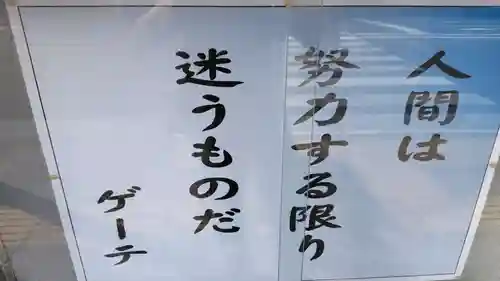 人間は
努力する限り
迷うものだ
ゲーテ